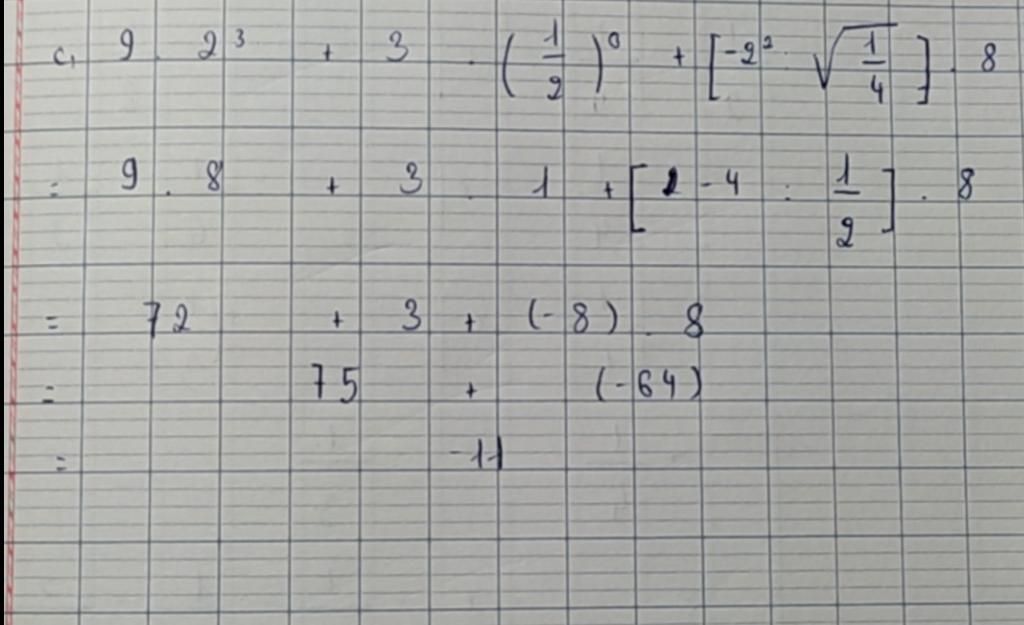 c, 9 . 2³ + 3 . (1/2)⁰ + [-2² √(1/4)] . 8
= 9 . 8 + 3 . 1 + [-4 : 1/2] . 8
= 72 + 3 + (-8) . 8
= 75 + (-64)
= -11